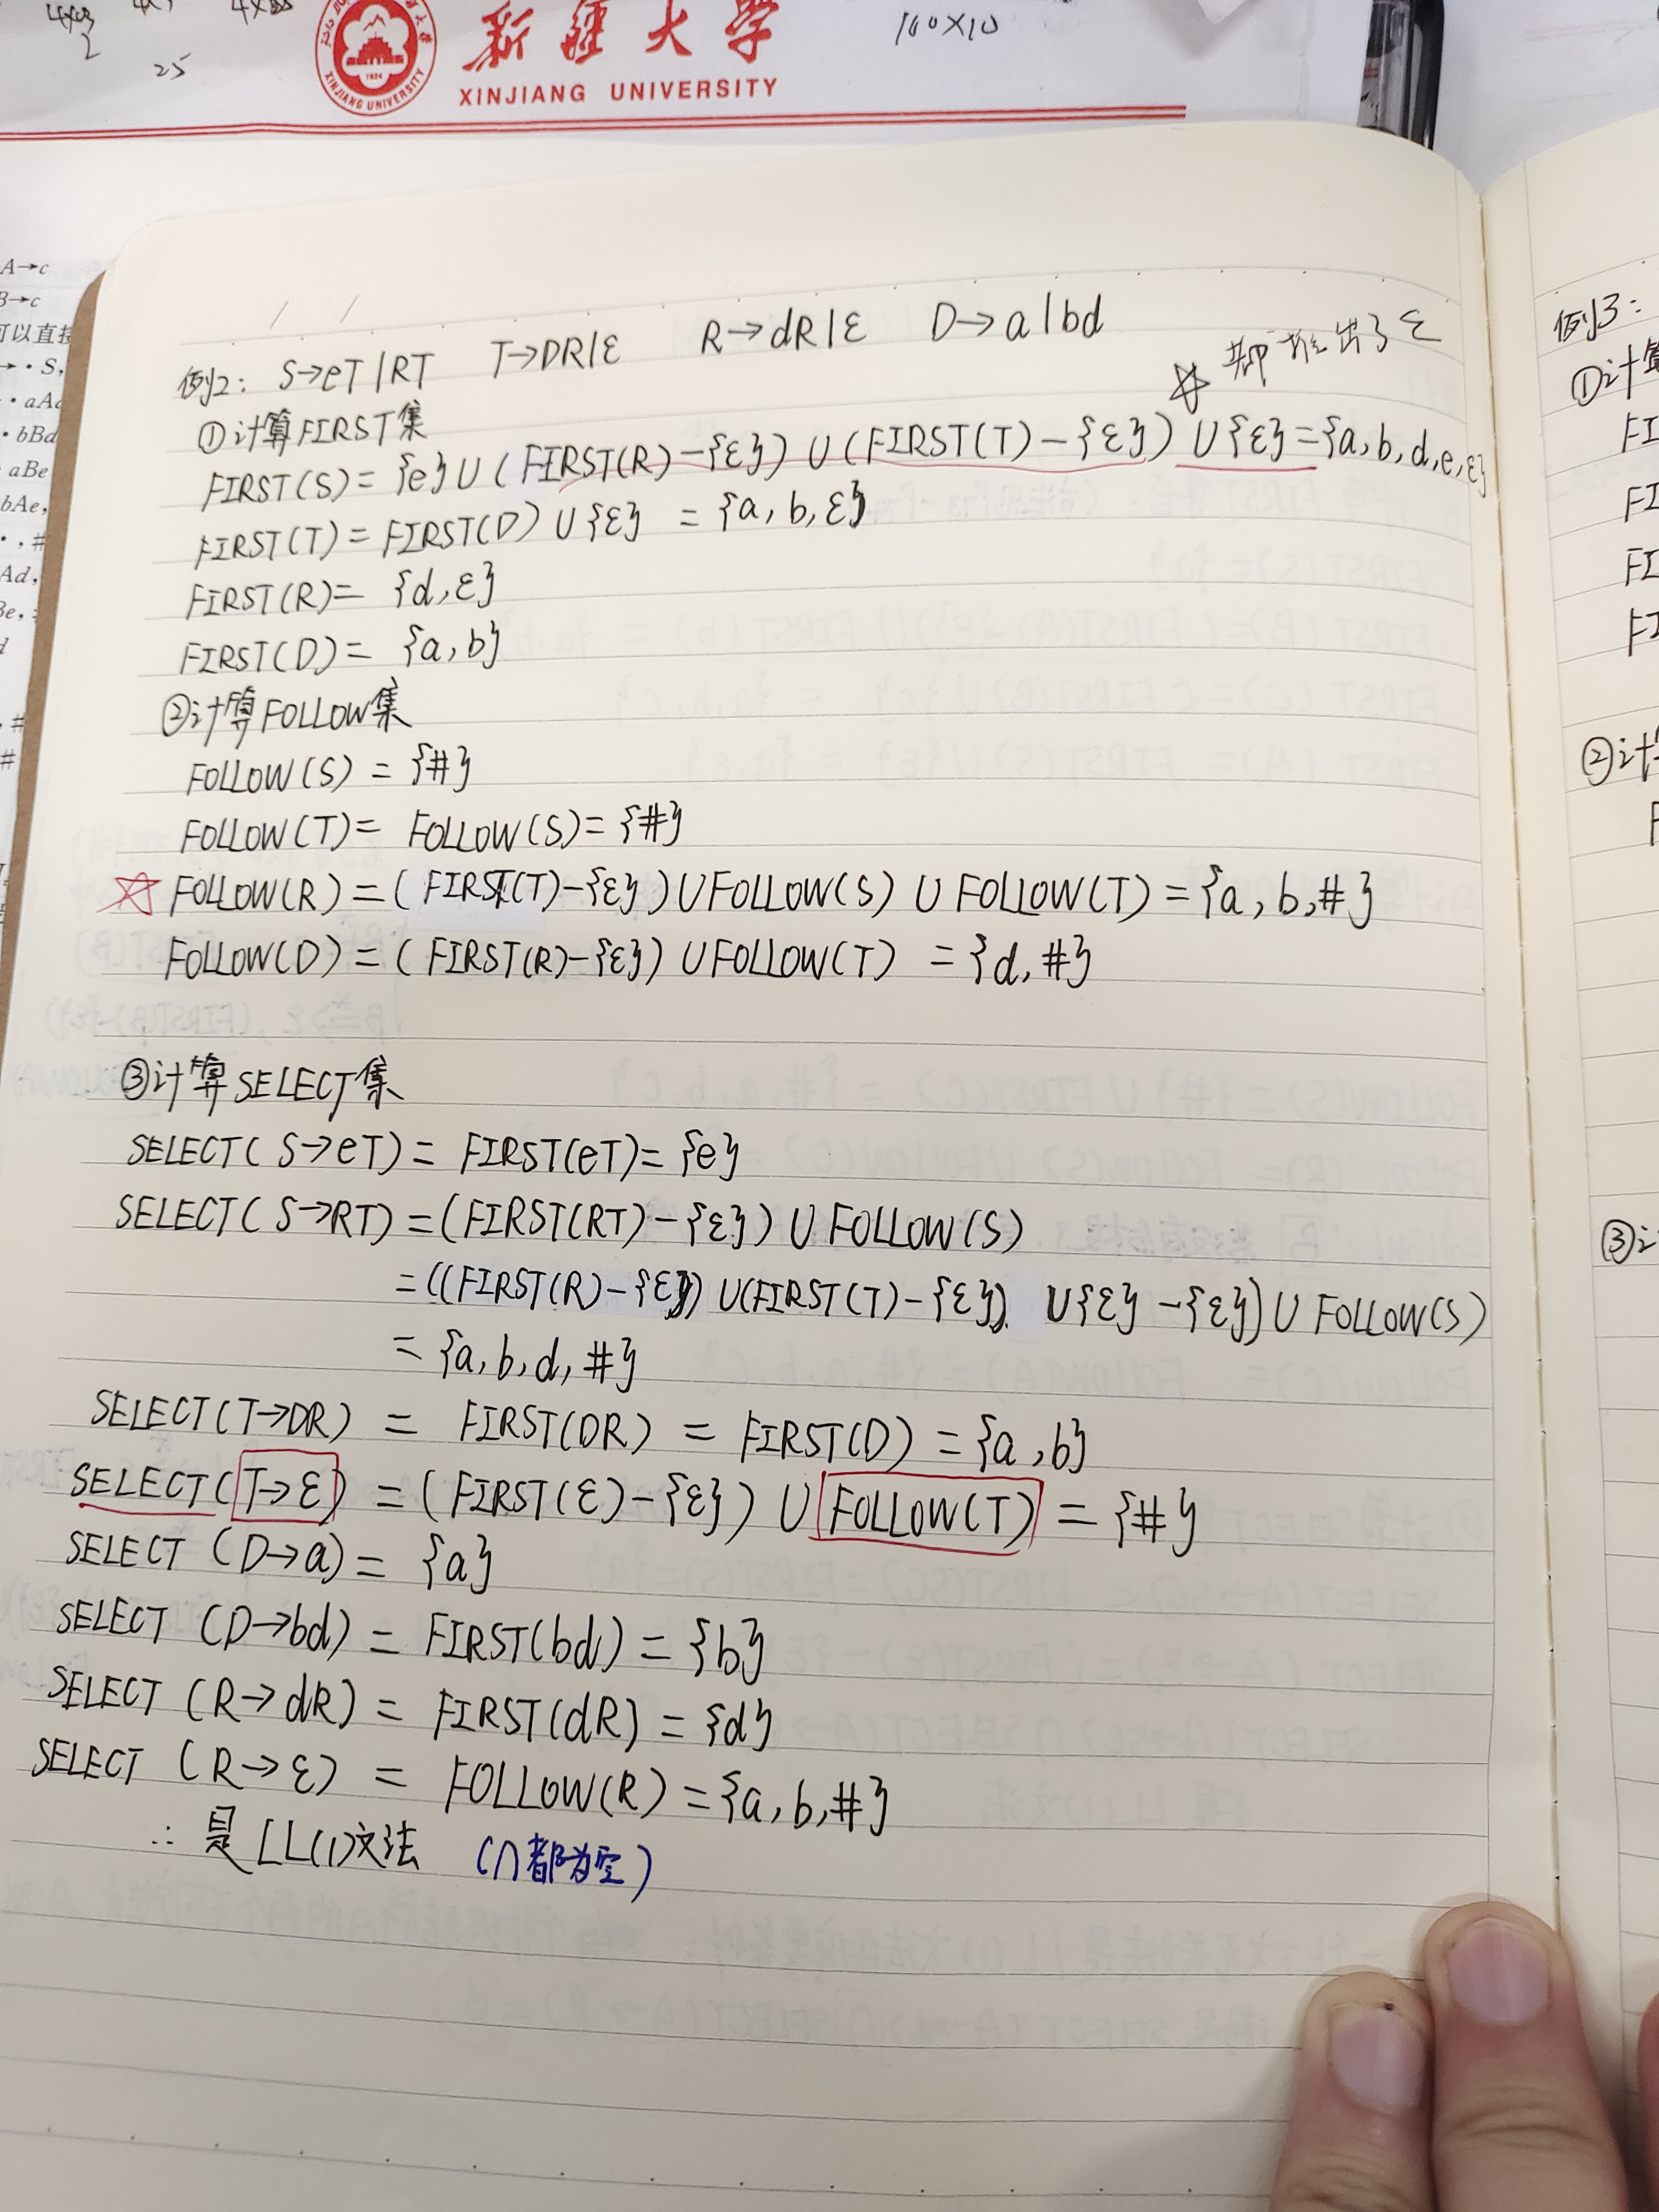 25
100×10
新疆大学
XINJIANG UNIVERSITY
A→c
B→c
可以直接
例2: S→eT|RT T→DR|ε R→dR|ε D→a|bd
☆都推出了ε
①计算FIRST集
FIRST(S)={e}∪(FIRST(R)-{ε})∪(FIRST(T)-{ε})∪{ε}={a,b,d,e,ε}
FIRST(T)=FIRST(D)∪{ε} ={a,b,ε}
FIRST(R)= {d,ε}
FIRST(D)= {a,b}
②计算FOLLOW集
FOLLOW(S)={#}
FOLLOW(T)= FOLLOW(S)={#}
☆FOLLOW(R)=(FIRST(T)-{ε})∪FOLLOW(S)∪FOLLOW(T)={a,b,#}
FOLLOW(D)=(FIRST(R)-{ε})∪FOLLOW(T) ={d,#}
③计算SELECT集
SELECT(S→eT)= FIRST(eT)={e}
SELECT(S→RT)=(FIRST(RT)-{ε})∪FOLLOW(S)
=((FIRST(R)-{ε})∪(FIRST(T)-{ε})∪{ε}-{ε})∪FOLLOW(S)
={a,b,d,#}
SELECT(T→DR) = FIRST(DR) = FIRST(D) ={a,b}
SELECT(T→ε) =(FIRST(ε)-{ε})∪FOLLOW(T)={#}
SELECT(D→a)= {a}
SELECT(D→bd)= FIRST(bd)={b}
SELECT(R→dR)= FIRST(dR)={d}
SELECT(R→ε) = FOLLOW(R)={a,b,#}
∴是LL(1)文法 (∩都为空)
例3:
①计算
②计
③计